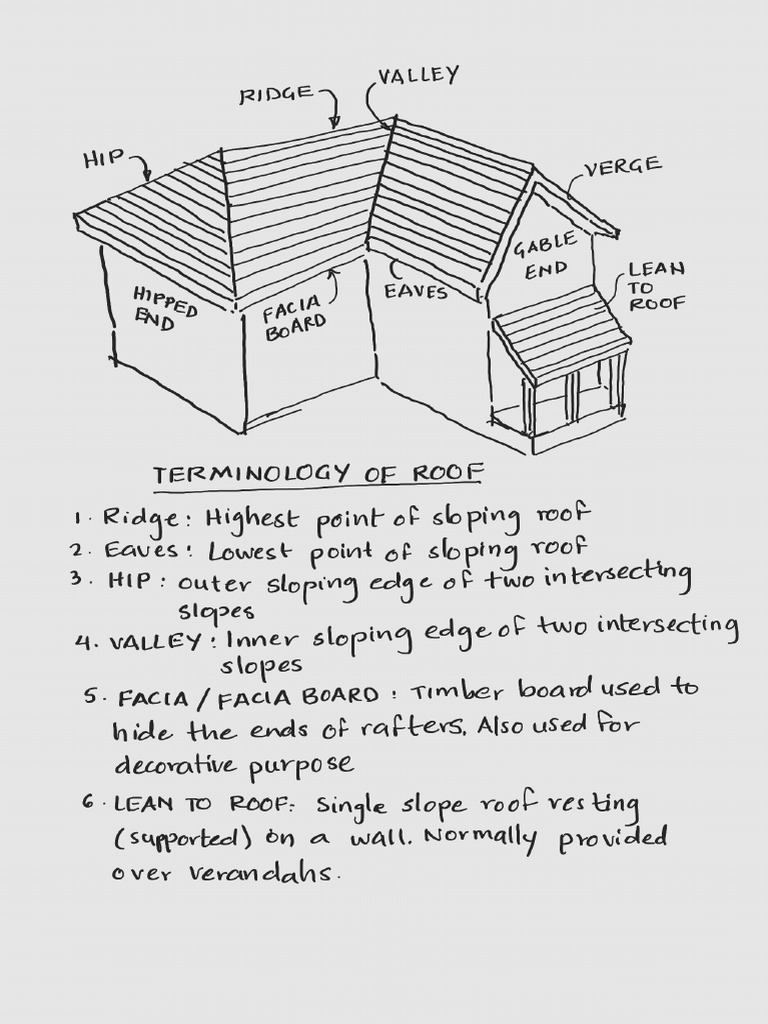 RIDGE
VALLEY
HIP
VERGE
GABLE
END
LEAN
TO
ROOF
HIPPED
END
FACIA
BOARD
EAVES
TERMINOLOGY OF ROOF
1. Ridge: Highest point of sloping roof
2. Eaves: Lowest point of sloping roof
3. HIP: outer sloping edge of two intersecting
slopes
4. VALLEY: Inner sloping edge of two intersecting
slopes
5. FACIA / FACIA BOARD: Timber board used to
hide the ends of rafters. Also used for
decorative purpose
6. LEAN TO ROOF: Single slope roof resting
(supported) on a wall. Normally provided
over verandahs.